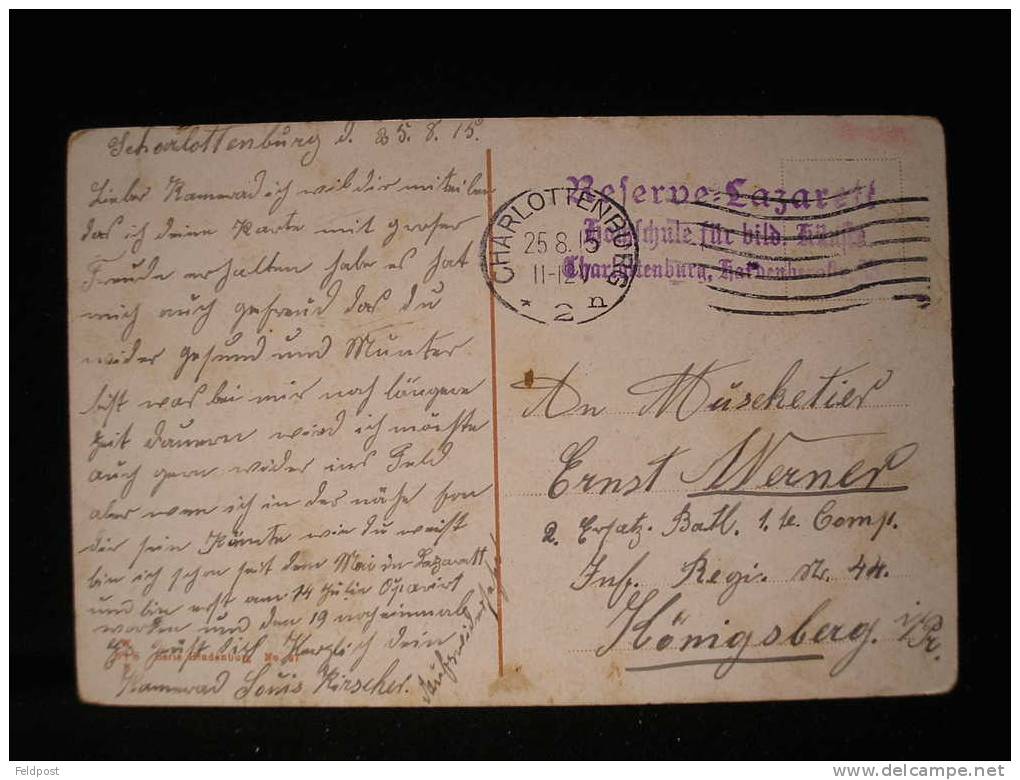 Scharlottenburg d. 25.8.15.
Lieber Kamerad ich wil dir miteilen
das ich deine Karte mit groser
Freude erhalten habe es hat
mich auch gefreud das du
wider gesund und Munter
bist was bei mir noch längere
Zeit dauern wird ich möchte
auch gern wider ins Feld
aber wen ich in der nähe von
dir sein Könte wie du weist
bin ich schon seit dem Mai im Lazarett
und bin erst am 14 Juli Operirt
worden und den 19 nocheinmal
Es grüst dich Herzlich dein
Kamerad Louis Kirscher.
Serie Lindenburg No.
Reserve-Lazarett
Hochschule für bild. Künste
Charlottenburg, Hardenbergstr.
CHARLOTTENBURG
25.8.15
11-12V
* 2 n
An Muscketier
Ernst Werner
2. Ersatz. Batl. 1. te. Comp.
Inf. Regi. Nr. 44.
Königsberg. i/Pr.
Feldpost
delcampe.net